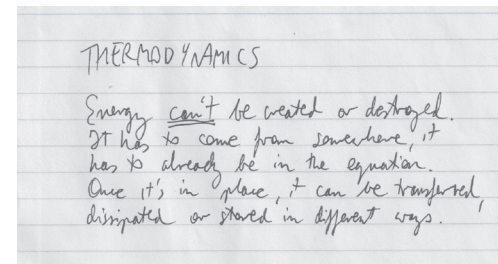 THERMODYNAMICS
Energy can't be created or destroyed.
It has to come from somewhere, it
has to already be in the equation.
Once it's in place, it can be transferred,
dissipated or stored in different ways.